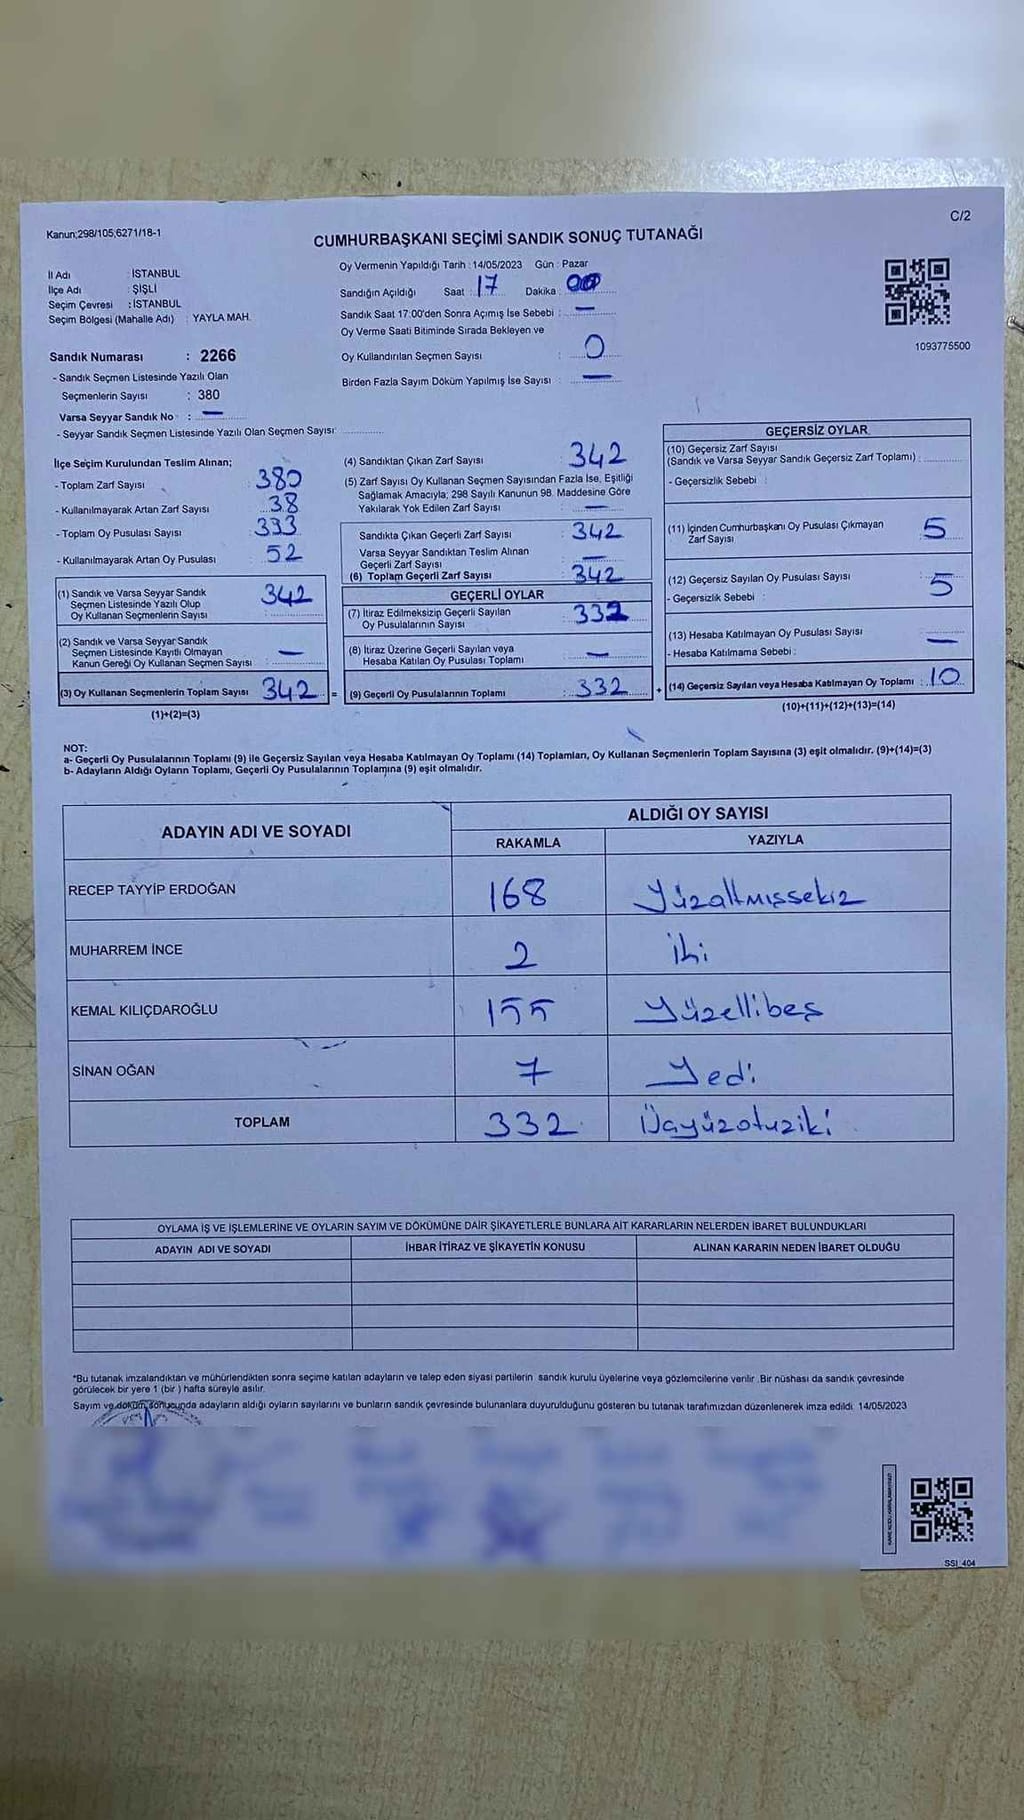 Kanun;298/105,6271/18-1
C/2
CUMHURBAŞKANI SEÇİMİ SANDIK SONUÇ TUTANAĞI
İl Adı : İSTANBUL
İlçe Adı : ŞİŞLİ
Seçim Çevresi : İSTANBUL
Seçim Bölgesi (Mahalle Adı) : YAYLA MAH.
Sandık Numarası : 2266
- Sandık Seçmen Listesinde Yazılı Olan
Seçmenlerin Sayısı : 380
Varsa Seyyar Sandık No : —
- Seyyar Sandık Seçmen Listesinde Yazılı Olan Seçmen Sayısı:
Oy Vermenin Yapıldığı Tarih : 14/05/2023 Gün : Pazar
Sandığın Açıldığı Saat : 17 Dakika : 00
Sandık Saat 17:00'den Sonra Açımış İse Sebebi : —
Oy Verme Saati Bitiminde Sırada Bekleyen ve
Oy Kullandırılan Seçmen Sayısı : 0
Birden Fazla Sayım Döküm Yapılmış İse Sayısı : —
1093775500
İlçe Seçim Kurulundan Teslim Alınan;
- Toplam Zarf Sayısı : 380
- Kullanılmayarak Artan Zarf Sayısı : 38
- Toplam Oy Pusulası Sayısı : 393
- Kullanılmayarak Artan Oy Pusulası : 52
(1) Sandık ve Varsa Seyyar Sandık
Seçmen Listesinde Yazılı Olup
Oy Kullanan Seçmenlerin Sayısı : 342
(2) Sandık ve Varsa Seyyar Sandık
Seçmen Listesinde Kayıtlı Olmayan
Kanun Gereği Oy Kullanan Seçmen Sayısı : —
(3) Oy Kullanan Seçmenlerin Toplam Sayısı : 342
(1)+(2)=(3)
(4) Sandıktan Çıkan Zarf Sayısı : 342
(5) Zarf Sayısı Oy Kullanan Seçmen Sayısından Fazla İse, Eşitliği
Sağlamak Amacıyla; 298 Sayılı Kanunun 98. Maddesine Göre
Yakılarak Yok Edilen Zarf Sayısı : —
Sandıkta Çıkan Geçerli Zarf Sayısı : 342
Varsa Seyyar Sandıktan Teslim Alınan
Geçerli Zarf Sayısı : —
(6) Toplam Geçerli Zarf Sayısı : 342
GEÇERLİ OYLAR
(7) İtiraz Edilmeksizip Geçerli Sayılan
Oy Pusulalarının Sayısı : 332
(8) İtiraz Üzerine Geçerli Sayılan veya
Hesaba Katılan Oy Pusulası Toplamı : —
= (9) Geçerli Oy Pusulalarının Toplamı : 332
GEÇERSİZ OYLAR
(10) Geçersiz Zarf Sayısı
(Sandık ve Varsa Seyyar Sandık Geçersiz Zarf Toplamı) :
- Geçersizlik Sebebi :
(11) İçinden Cumhurbaşkanı Oy Pusulası Çıkmayan
Zarf Sayısı : 5
(12) Geçersiz Sayılan Oy Pusulası Sayısı : 5
- Geçersizlik Sebebi :
(13) Hesaba Katılmayan Oy Pusulası Sayısı : —
- Hesaba Katılmama Sebebi :
+ (14) Geçersiz Sayılan veya Hesaba Katılmayan Oy Toplamı : 10
(10)+(11)+(12)+(13)=(14)
NOT:
a- Geçerli Oy Pusulalarının Toplamı (9) ile Geçersiz Sayılan veya Hesaba Katılmayan Oy Toplamı (14) Toplamları, Oy Kullanan Seçmenlerin Toplam Sayısına (3) eşit olmalıdır. (9)+(14)=(3)
b- Adayların Aldığı Oyların Toplamı, Geçerli Oy Pusulalarının Toplamına (9) eşit olmalıdır.
ADAYIN ADI VE SOYADI
ALDIĞI OY SAYISI
RAKAMLA YAZIYLA
RECEP TAYYİP ERDOĞAN 168 Yüzaltmışsekiz
MUHARREM İNCE 2 iki
KEMAL KILIÇDAROĞLU 155 Yüzellibeş
SİNAN OĞAN 7 Yedi
TOPLAM 332 Üçyüzotuziki
OYLAMA İŞ VE İŞLEMLERİNE VE OYLARIN SAYIM VE DÖKÜMÜNE DAİR ŞİKAYETLERLE BUNLARA AİT KARARLARIN NELERDEN İBARET BULUNDUKLARI
ADAYIN ADI VE SOYADI İHBAR İTİRAZ VE ŞİKAYETİN KONUSU ALINAN KARARIN NEDEN İBARET OLDUĞU
*Bu tutanak imzalandıktan ve mühürlendikten sonra seçime katılan adayların ve talep eden siyasi partilerin sandık kurulu üyelerine veya gözlemcilerine verilir .Bir nüshası da sandık çevresinde
görülecek bir yere 1 (bir ) hafta süreyle asılır.
Sayım ve döküm sonucunda adayların aldığı oyların sayılarını ve bunların sandık çevresinde bulunanlara duyurulduğunu gösteren bu tutanak tarafımızdan düzenlenerek imza edildi. 14/05/2023
SSI_404